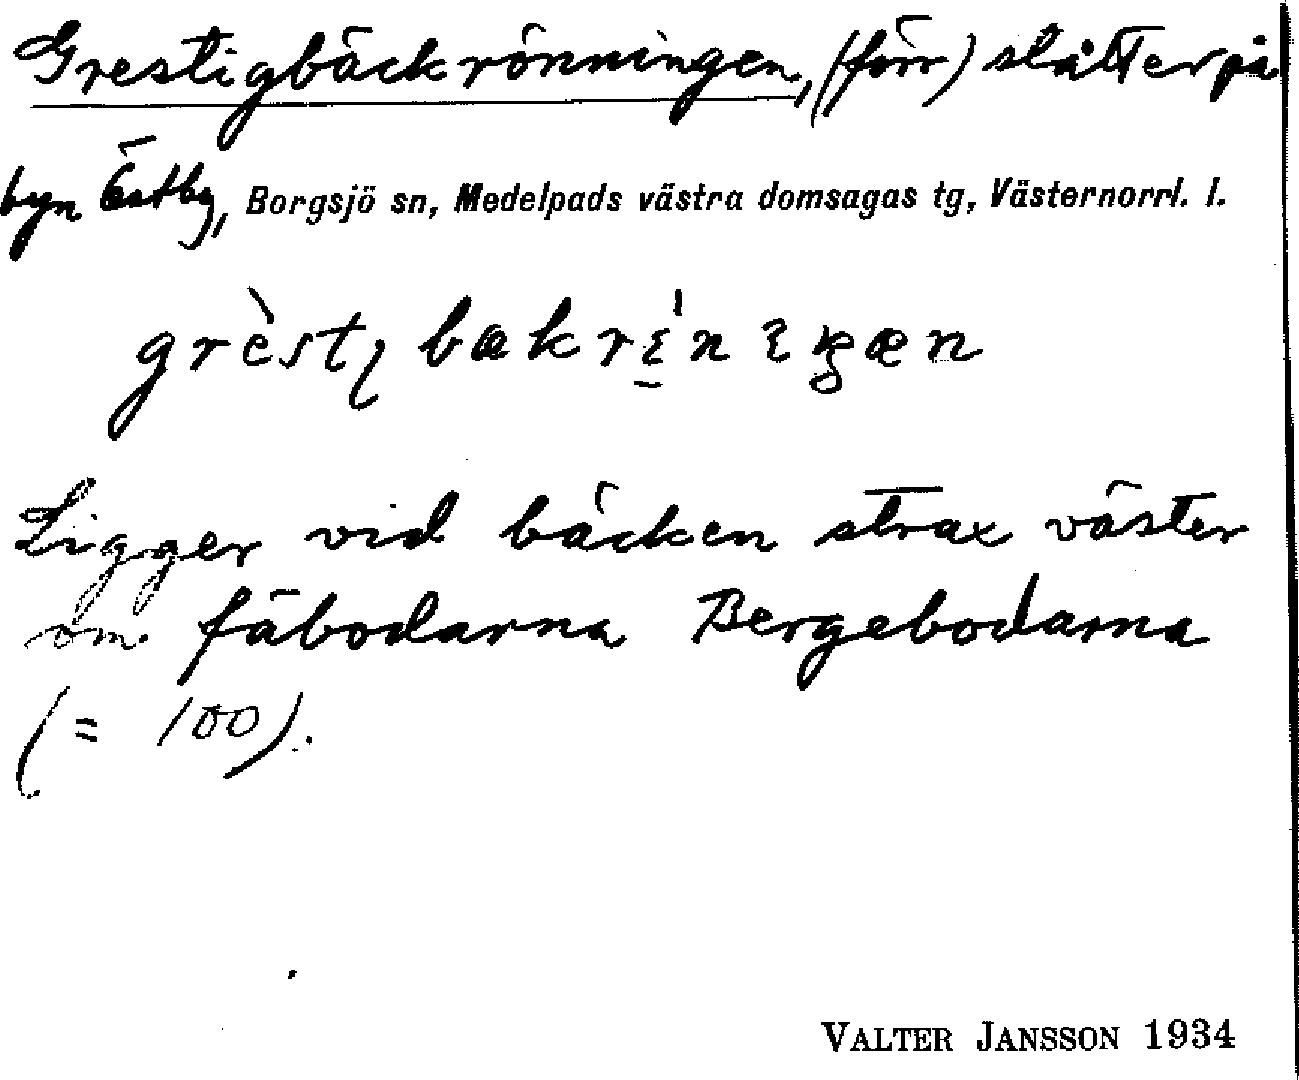 Grestigbäckrönningen, (förr) slåtter på
byn Östby, Borgsjö sn, Medelpads västra domsagas tg, Västernorrl. l.
Ligger vid bäcken strax väster
om fäbodarna Bergebodarna
(= 100).
VALTER JANSSON 1934